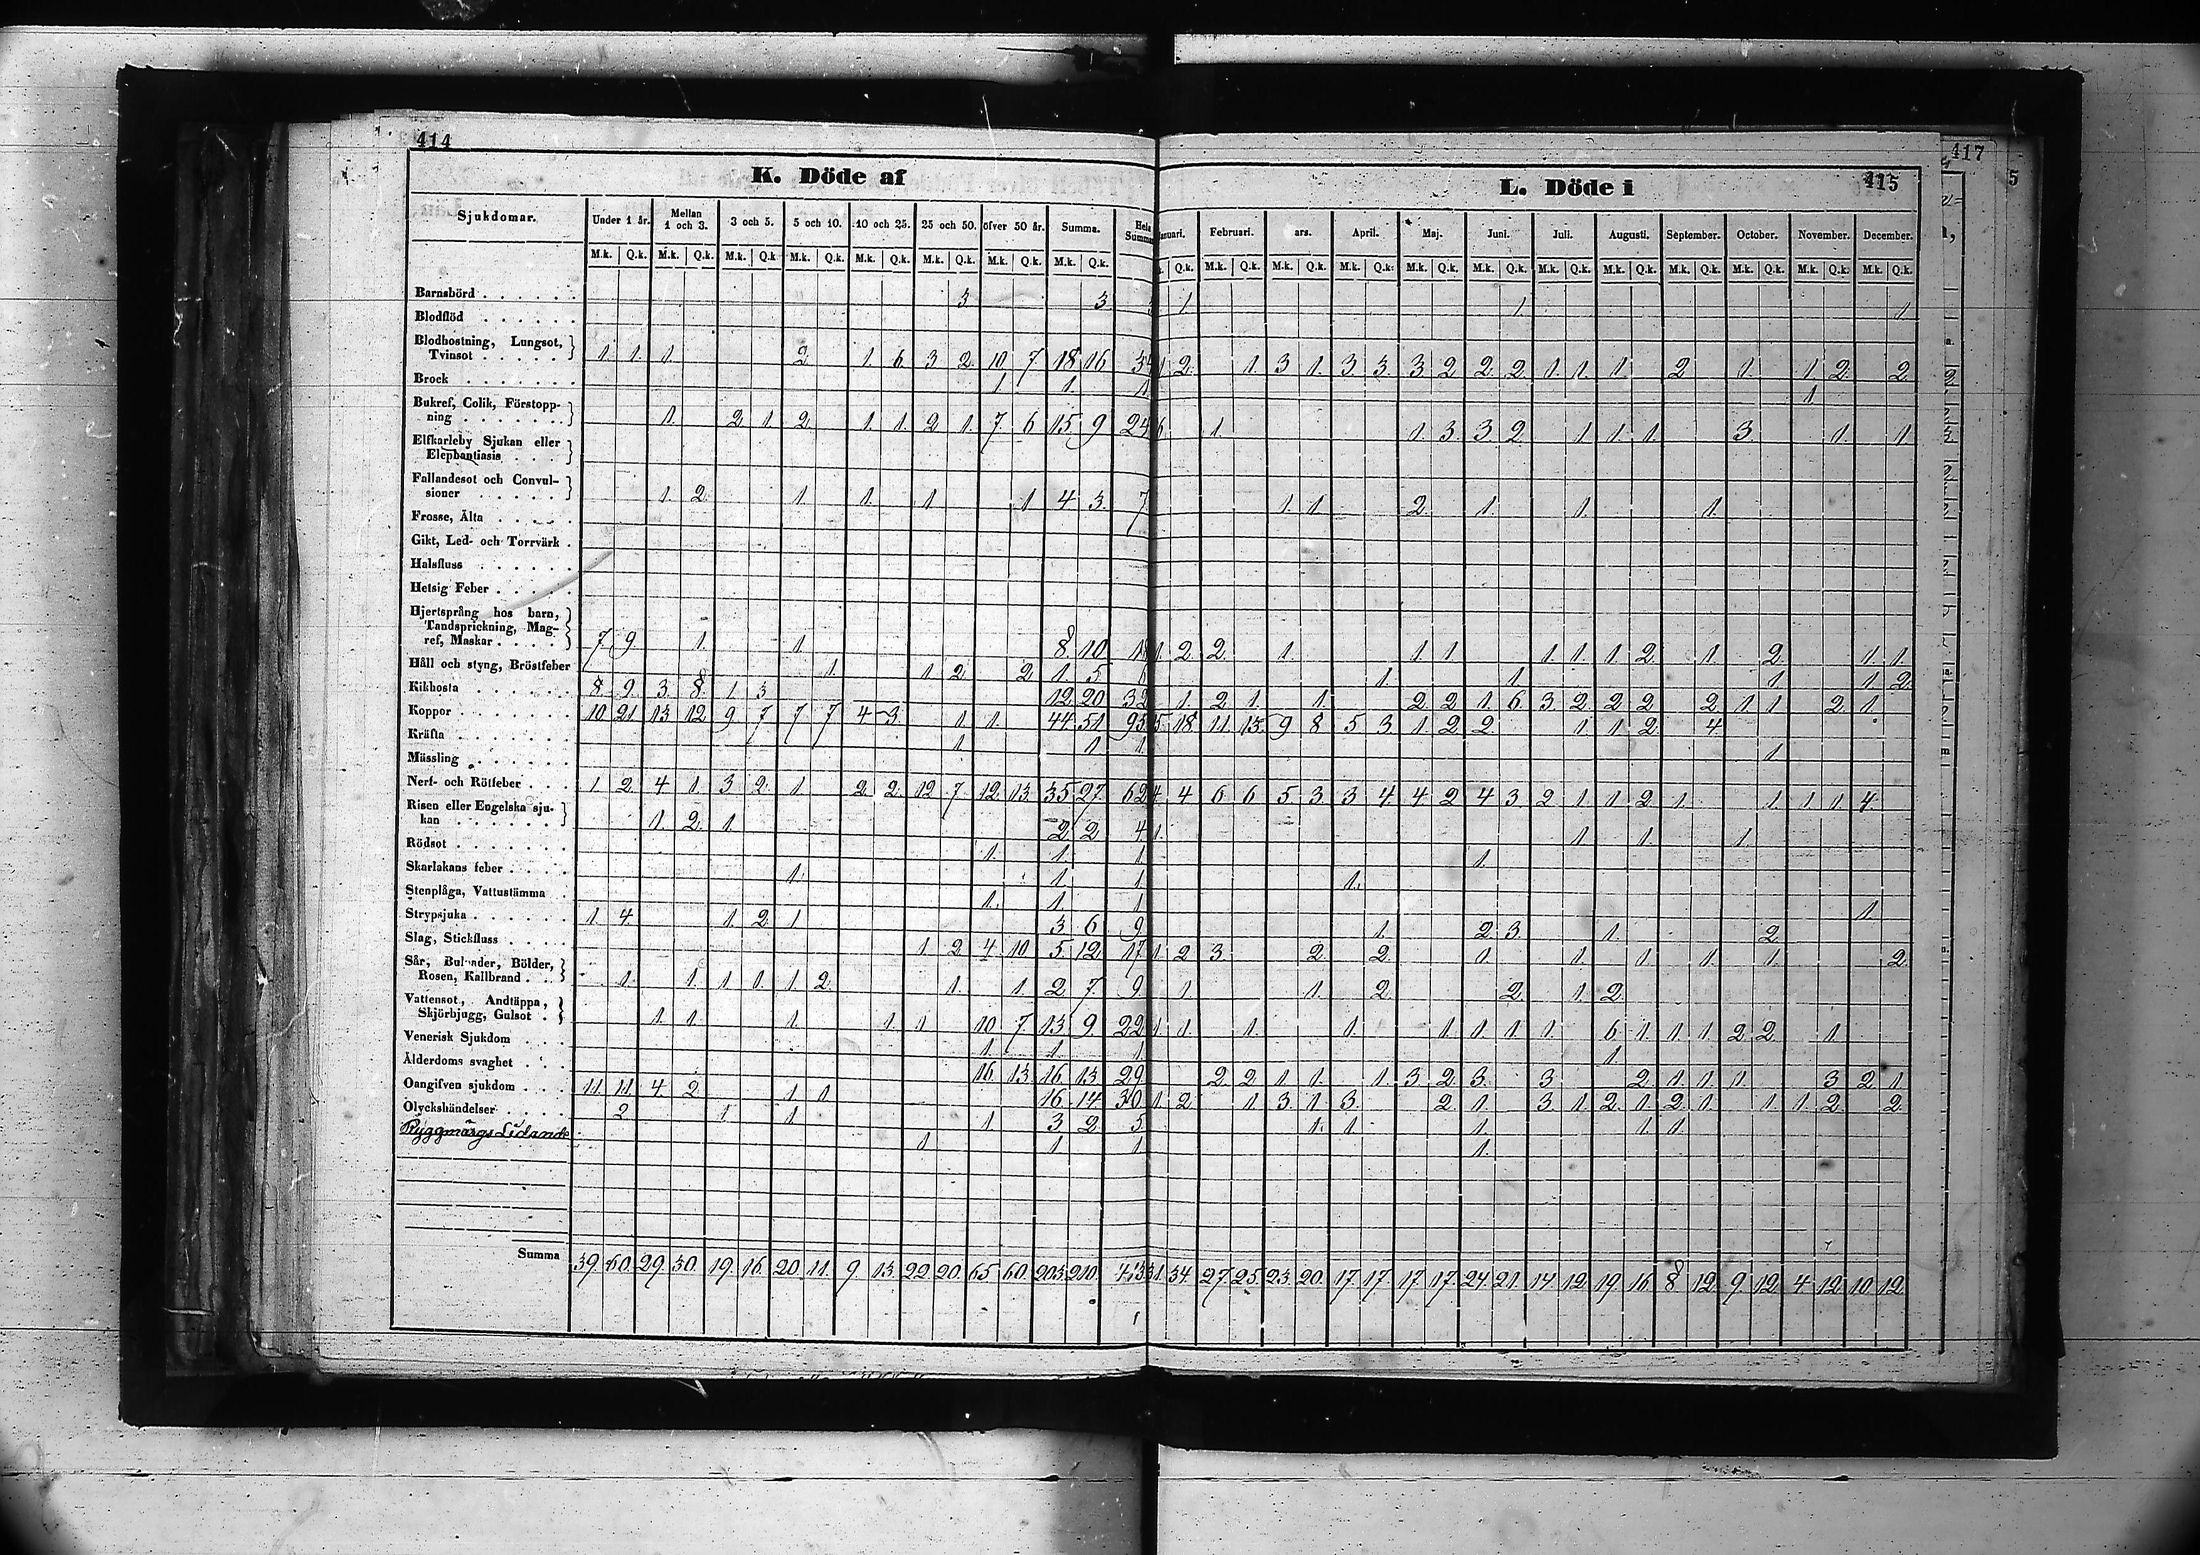 414
K. Döde af
Sjukdomar. Under 1 år. Mellan 1 och 3. 3 och 5. 5 och 10. 10 och 25. 25 och 50. öfver 50 år. Summa. Hela Summa
M.k. Q.k. M.k. Q.k. M.k. Q.k. M.k. Q.k. M.k. Q.k. M.k. Q.k. M.k. Q.k. M.k. Q.k.
Barnsbörd 3 3
Blodflöd
Blodhostning, Lungsot,
Tvinsot 1. 1. 1. 2 1. 6 3 2 10 7 18 16 34
Brock 1 1. 1
Bukref, Colik, Förstopp-
ning 1. 2 1. 2 1. 1. 2 1. 7 6 15 9 24
Elfkarleby Sjukan eller
Elephantiasis
Fallandesot och Convul-
sioner 1. 2 1. 1. 1 1 4 3 7
Frosse, Älta
Gikt, Led- och Torrvärk
Halsfluss
Hetsig Feber
Hjertsprång hos barn,
Tandsprickning, Mag-
ref, Maskar 7 9 1. 1 8 10
Håll och styng, Bröstfeber 1. 1 2 2 1. 5
Kikhosta 8 9 3 8 1 3 12 20 32
Koppor 10 21 13 12 9 7 7 7 4 3 1 1. 44 51 95
Kräfta 1 1 1
Mässling
Nerf- och Rötfeber 1 2 4 1. 3 2 1. 2 2 12 7 12 13 35 27 62
Risen eller Engelska sju-
kan 1. 2. 1. 2 2 4
Rödsot 1. 1. 1
Skarlakans feber 1. 1. 1
Stenplåga, Vattustämma 1. 1 1
Strypsjuka 1. 4 1. 2. 1 3 6 9
Slag, Stickfluss 1 2 4 10 5 12 17
Sår, Bulnader, Bölder,
Rosen, Kallbrand 1. 1. 1 1. 1. 2 1. 1 2 7 9
Vattensot, Andtäppa,
Skjörbjugg, Gulsot 1. 1. 1. 1. 1 10 7 13 9 22
Venerisk Sjukdom 1. 1. 1
Ålderdoms svaghet 16 13 16 13 29
Oangifven sjukdom 11 11 4 2 1 1 16 14 30
Olyckshändelser 2 1 1 1. 3 2 5
Ryggmärgs Lidande 1 1 1
Summa 39 60 29 30 19 16 20 11 9 13 22 20 65 60 203 210 413
415
L. Döde i
anuari. Februari. ars. April. Maj. Juni. Juli. Augusti. September. October. November. December.
Q.k. M.k. Q.k. M.k. Q.k. M.k. Q.k. M.k. Q.k. M.k. Q.k. M.k. Q.k. M.k. Q.k. M.k. Q.k. M.k. Q.k. M.k. Q.k. M.k. Q.k.
1 1 1
1 2 1. 3 1. 3 3 3 2 2 2 1. 1. 1. 2 1. 1 2 2
1
6 1. 1. 3 3 2 1 1 1 3 1. 1
1. 1 2 1 1. 1
1 2 2 1. 1 1 1 1 1 2 1. 2 1. 1.
1. 1 1 1. 2
1. 2 1. 1. 2 2 1. 6 3 2 2 2 2 1 1 2 1.
5 18 11 13 9 8 5 3 1. 2 2 1 1 2 4
1
4 4 6 6 5 3 3 4 4 2 4 3 2 1 1 2 1. 1 1 1 4
1. 1 1. 1
1.
1.
1.
1. 2 3 1. 2
1 2 3 2 2 1. 1. 1 1 1. 2
1 1. 2 2 1. 2
1 1. 1. 1. 1. 1. 1. 1. 6 1. 1. 1. 2 2 1.
1
2 2 1 1. 1. 3 2 3. 3 2 1. 1. 1. 3 2 1
1 2 1. 3. 1 3. 2 1. 3 1 2. 1. 2 1 1 1 2 2
1. 1 1. 1 1.
1.
31. 34 27 25 23 20 17 17 17 17 24 21 14 12 19 16 8 12 9 12 4 12 10 12
417
5